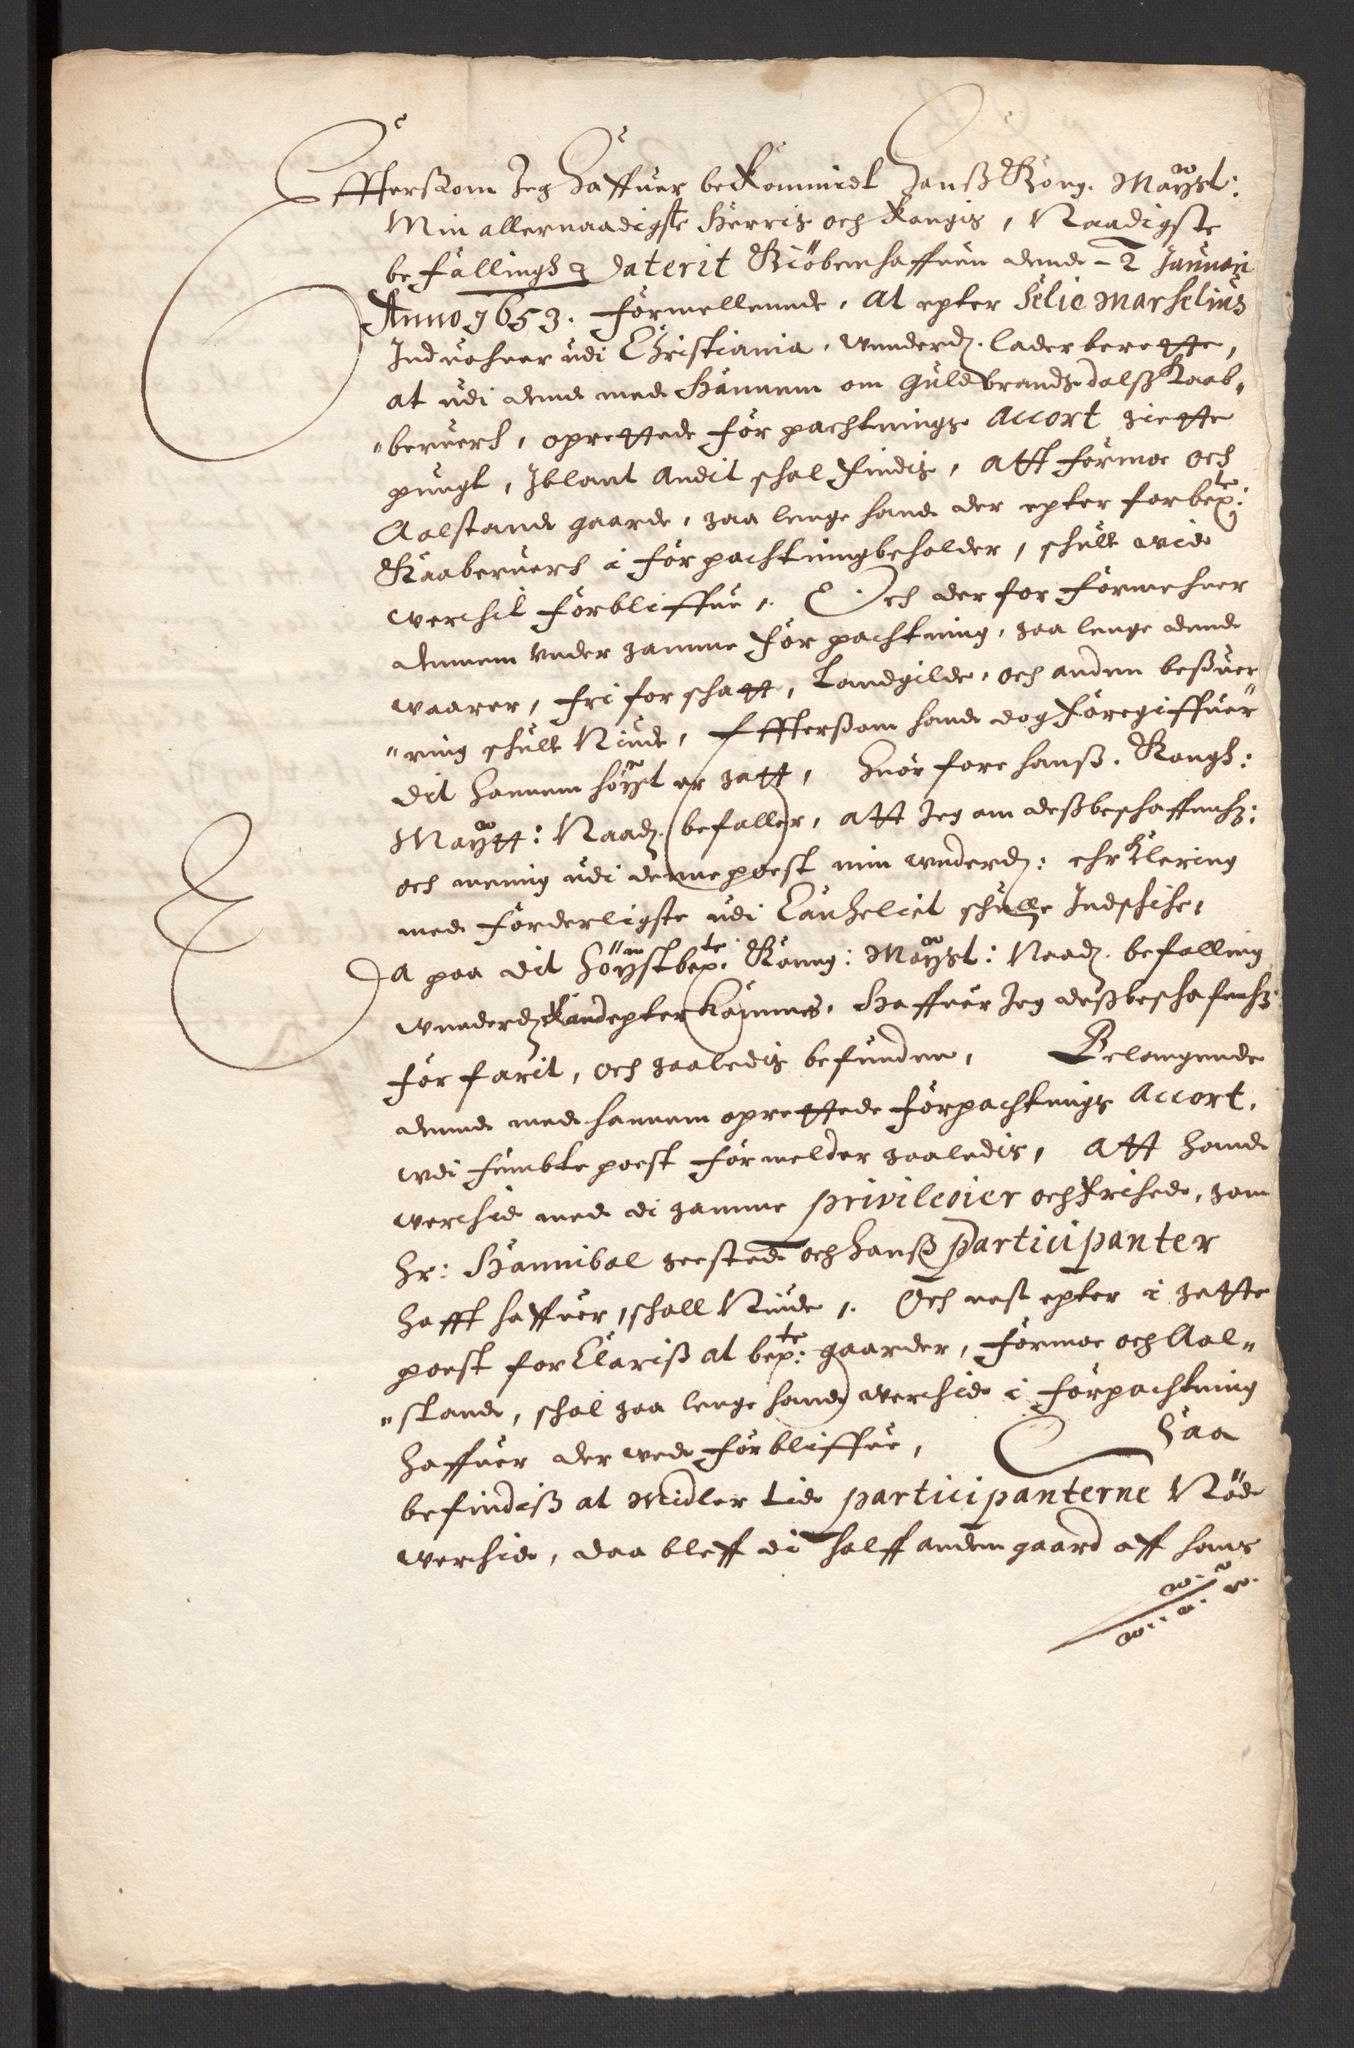 Effterßom Jeg haffuer bekommidt hanß Kong. Maÿst:
Min allernaadigste Herris och Kongis, Naadigste
befallingh daterit Kiöbenhaffuen dend 2 Januari
Anno 1653. formellennde, at epter Selio Marselius
Induohner udi Christiania, wnnderd. lader berette,
at udi dend med Hannem om Guldbrandsdalß Kaab-
berverch, oprettede forpachtnings Accort siette
pungt, Iblant Andit schal findis, Att formoe och
Aalstand gaarde, saa lenge hand der epter forbete:
Kaaberverch i forpachtning beholder, schulle wid
werchit forbliffue, Och der for formehner
dennem vnder samme forpachtning, saa lenge dend
waarer, fri for schatt, Landgilde, och anden beßuer
ring schulle Niude, Effterßom hand dog foregiffuer
dit hannem höÿst er satt, huor fore hanß. Kongh:
Maÿtt: Naad. befaller, att Jeg om deßbeschaffenh:
och mening udi denne poest min wnderd: ehrklering
med forderligste udi Canseliet schulle Indschiche,
Da paa dit höÿstbete. Konng: Maÿst: Naad. befalling
wnnderd. kand epterkommes, Haffuer Jeg deßbeschafenh:
forfarit, och saaledis befunden, Belangende
dennd med hannem oprettede forpachtnings Accort,
wdi fembte poest formelder saaledis, Att hand
werchid med di samme privileier och frihed, som
Hr: Hannibal Seested och hanß participanter
hafft haffuer, schall Niude, Och nest epter i siette
poest forclariß at bete: gaarder, formoe och Aal-
stand, schal saa lenge hand werchid i forpachtning
haffuer der wed forbliffue, Saa
befindiß at midler tid participanterne Nöd
werchid, daa bleff di halff anden gaard aff hans